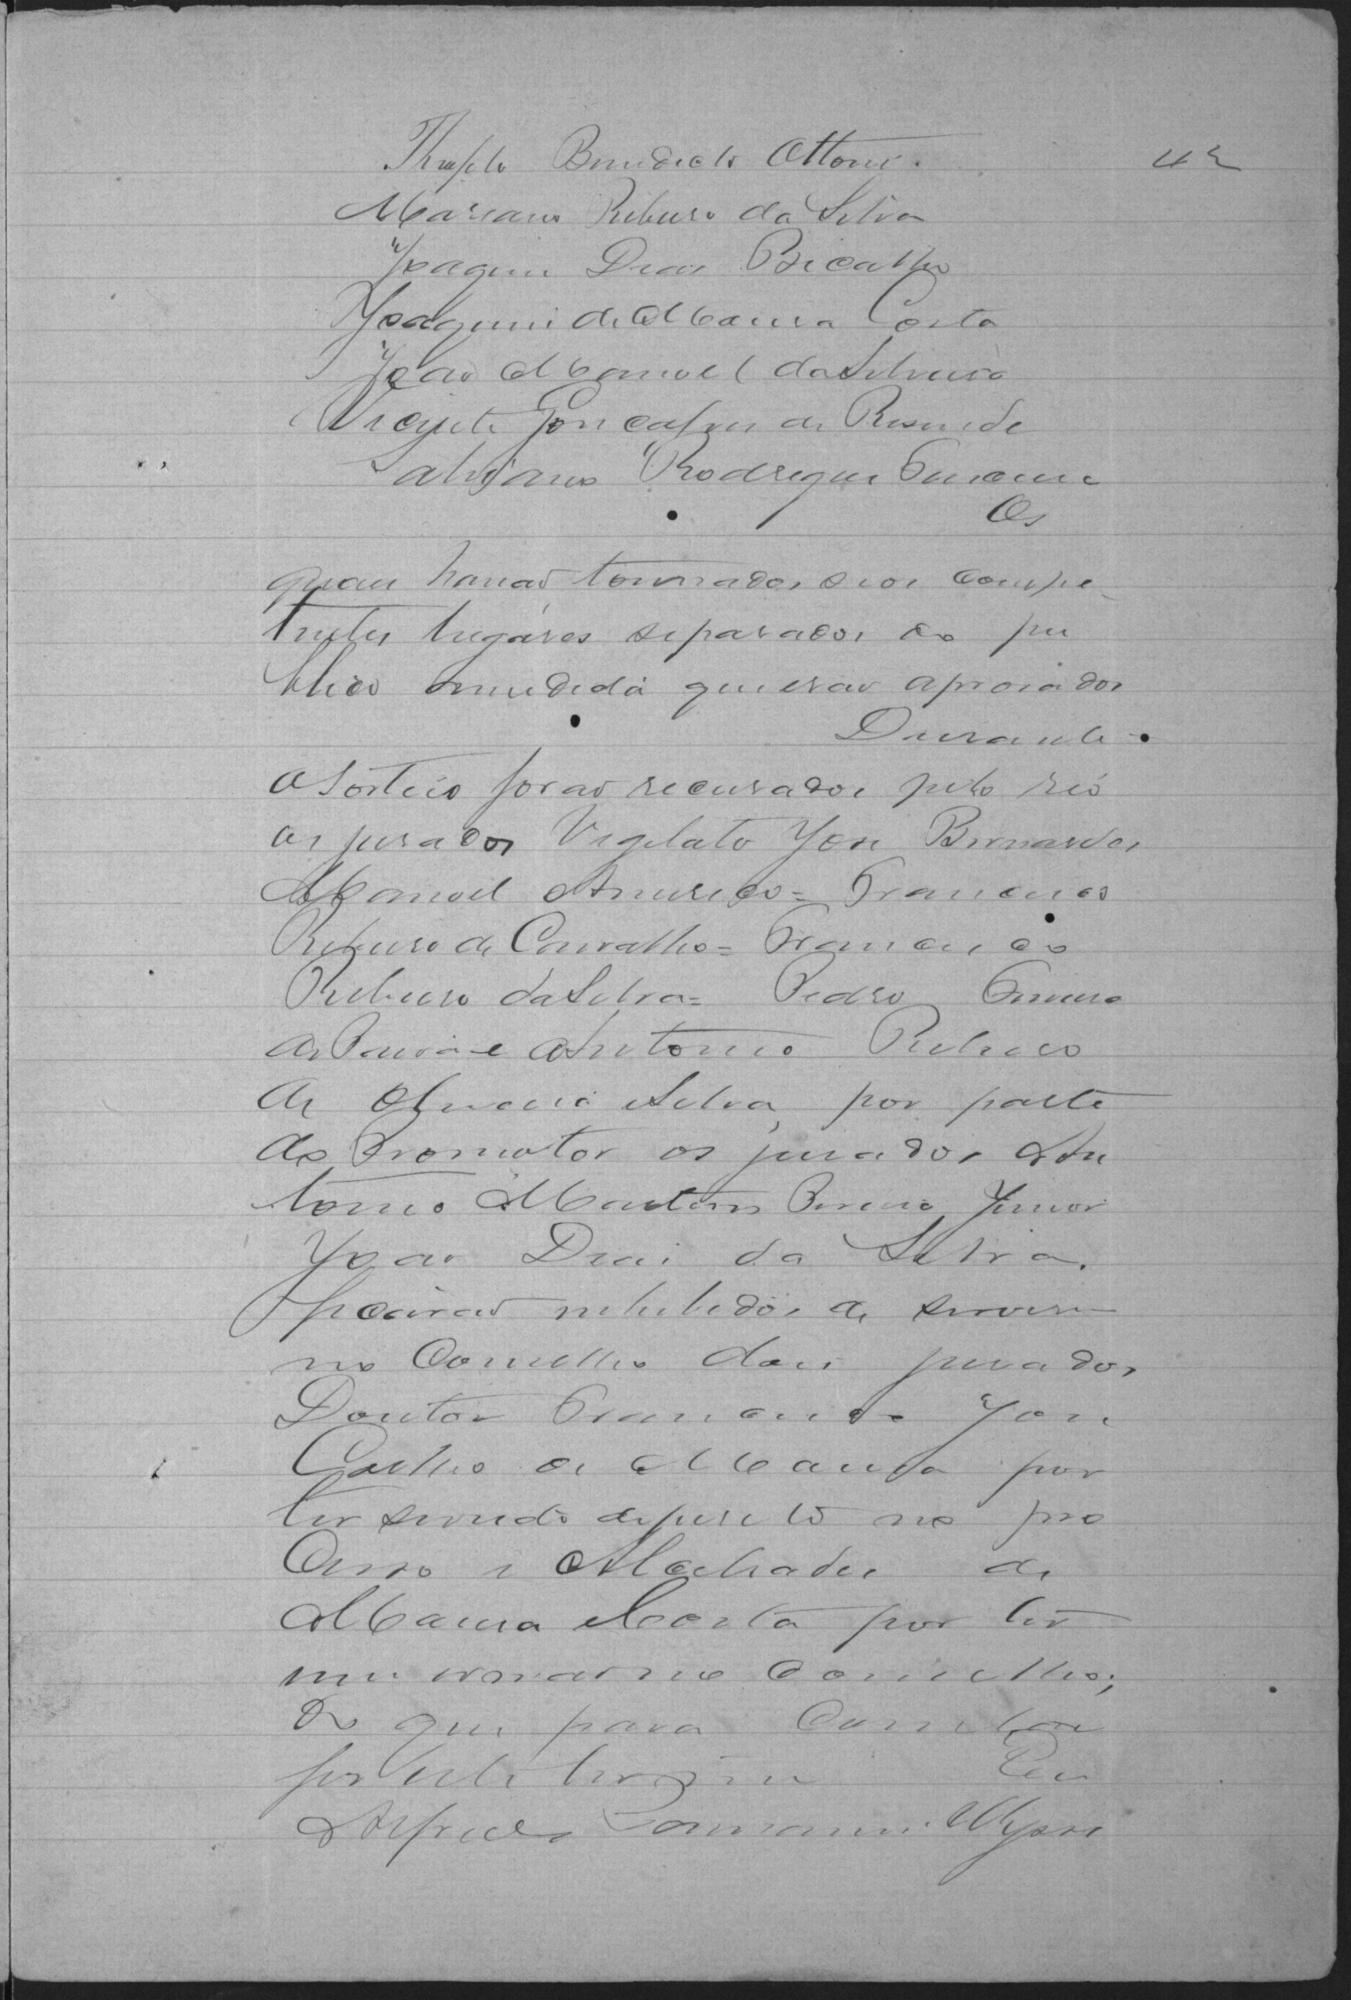 Theofilo Benedicto Ottoni. 42
Mariano Ribeiro da Silva
Joaquim Dias Bicalho
Joaquim de Moura Costa
João Manoel da Silveira
Vicente Gonçalves de Resende
Rodrigues
Os
quaes tomarão seos compe
tentes lugares separados do pu
blico amedida que erão aprovados
Durante
o sorteio forão recusados pelo réo
os jurados Vigilato José Bernardes
Manoel Americo = Francisco
Ribeiro de Carvalho = Francisco
Ribeiro da Silva = Pedro
de e Antonio Ribeiro
de Oliveira Silva, por parte
do Promotor os jurados An
tonio Martins Pereira Junior
João Dias da Silva.
Ficarão inhibidos de servirem
no Conselho dois jurados
Doutor Francisco José
Coelho de Moura por
ter servido de perito no pro
cesso e Machado de
Moura Costa por ter
irmão no Conselho;
do que para constar
fiz este termo Eu
Alfredo